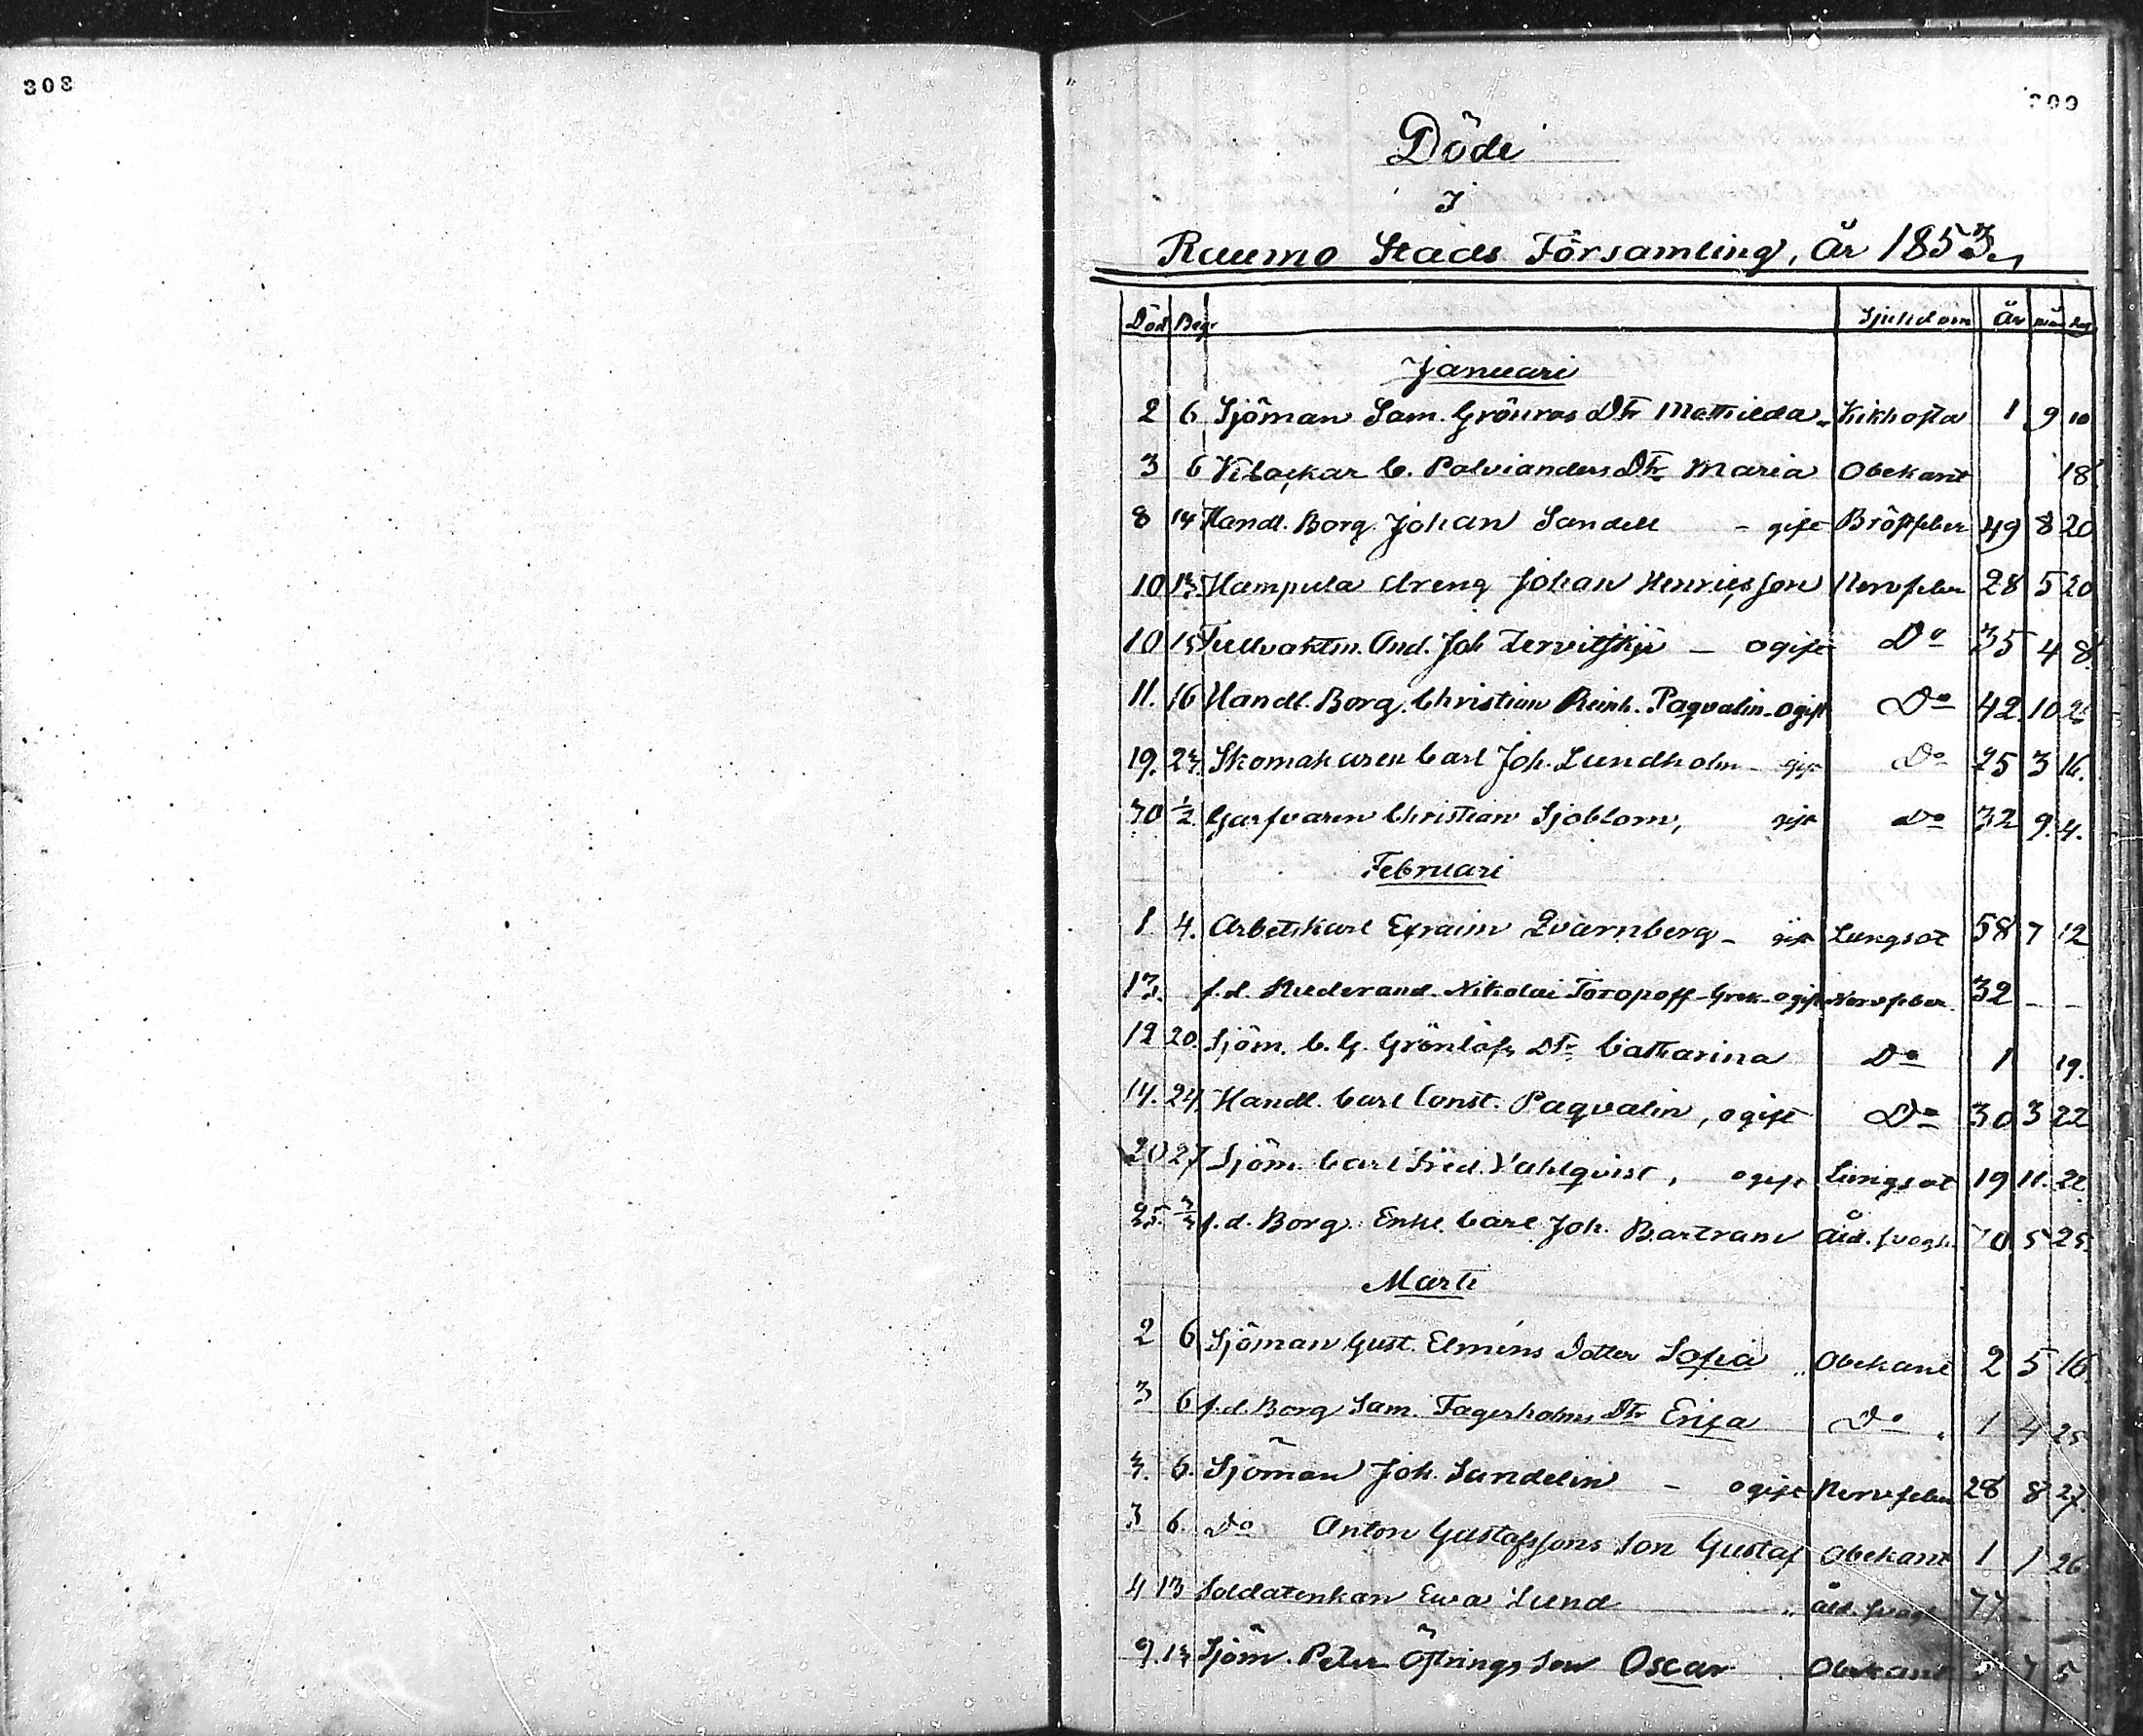 308
309
Döde
I
Raumo Stads Församling, År 1853.
Död Begr Sjukdom År mån dag
Januari
2 6 Sjöman Sam. Grönros Dtr Mathilda Kikhosta 1 9 10
3 6 C. Polvianders Dtr Maria Obekant 18
8 14 Handl. Borg. Johan Sandell - gift Bröstfeber 49 8 20
10 13 Hampula dreng Johan Henricsson Nervfeber 28 5 20
10 15 Tullvaktm. And. Joh - ogift Do 35 4 8.
11. 16 Handl. Borg. Christian Reinh. Paqvalin - ogift Do 42. 10
19. 23. Skomakaren Carl Joh. Lundholm - gift Do 25 3 16.
30 1/2. Garfvaren Christian Sjöblom, gift Do 32 9. 4.
Februari
1 4. Arbetskarl Efraim Qvarnberg - gift Lungsot 58 7 12
13. f.d. Nikolai Toropoff - Grek. ogift Nervfeber. 32 - -
12 20. Sjöm. C. G. Grönlöfs Dtr Catharina Do 1 19.
14. 24 Handl. Carl Const. Paqvalin, ogift Do 30 3 22
20 27 Sjöm. Carl Fred. Vahlqvist, ogift Lungsot 19 11. 22
25. 3/3 f.d. Borg. Enkl. Carl Joh. Bartram Åld. svagh. 70 5 25.
Marti
2 6 Sjöman Gust. Elméns Dotter Sofia Obekant 2 5 16.
3 6 f.d. Borg Sam. Fagerholms Dtr Erica Do 1 4 25
3. 6. Sjöman Joh. Sandelin - ogift Nervfeber 28 8 27.
3 6. Do Anton Gustafssons Son Gustaf Obekant 1 1 26
4 13 Soldatenkan Ewa Lund åld. svagh 77. -
9. 13 Sjöm. Peter Son Oscar Obekant 7 5